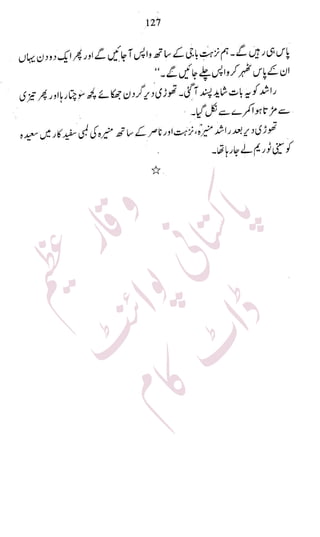 127
پاس ہی رہیں گے۔ ہم نزہت باجی کے ساتھ واپس آ جائیں گے اور پھر ایک دو دن یہاں
ان کے پاس ٹھہر کر واپس چلے جائیں گے۔“
راشد کو یہ بات شاید پسند آ گئی۔ تھوڑی دیر گردن جھکائے کچھ سوچتا رہا اور پھر تیزی
سے مڑتا ہوا کمرے سے نکل گیا۔
تھوڑی دیر بعد راشد منیزہ، نزہت اور ناصر کے ساتھ منیزہ کی لمبی سفید کار میں سعیدہ
کو سینی ٹوریم لے جا رہا تھا۔
☆
وقار عظیم
پاکستانی پوائنٹ
ڈاٹ کام